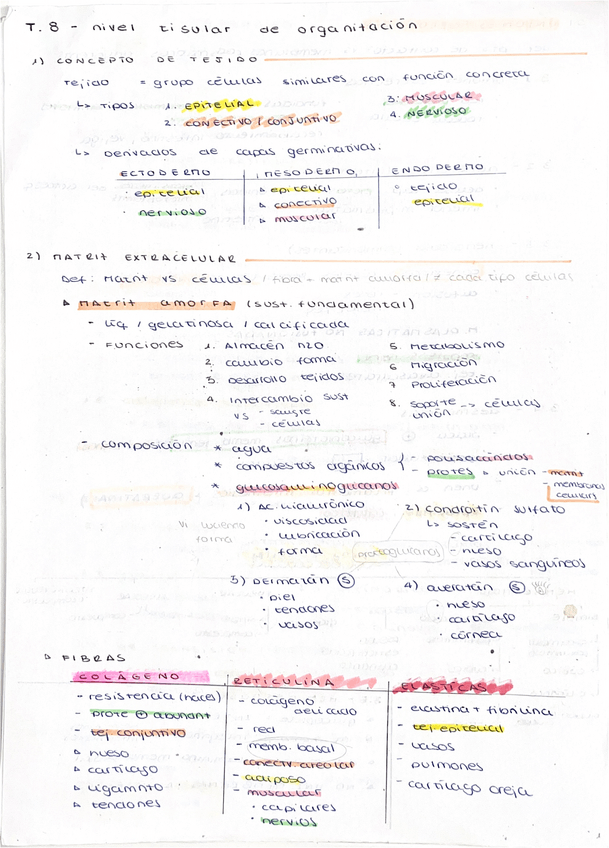 T. 8 - nivel tisular de organización
1) CONCEPTO DE TEJIDO
Tejido = grupo células similares con función concreta
↳ TIPOS 1. EPITELIAL 3. MUSCULAR
2. CONECTIVO / CONJUNTIVO 4. NERVIOSO
↳ Derivados de capas germinativas:
ECTODERMO MESODERMO ENDODERMO
epitelial epitelial tejido
nervioso conectivo epitelial
muscular
2) MATRIZ EXTRACELULAR
Def: Matriz vs células / fibra = matriz amorfa / ≠ cada tipo células
MATRIZ AMORFA (sust. fundamental)
- líq / gelatinosa / calcificada
- FUNCIONES 1. Almacén H2O 5. Metabolismo
2. cambio forma 6 Migración
3. Desarrollo tejidos 7 Proliferación
4. Intercambio sust 8. soporte --> células
vs - sangre unión
- células
- composición * agua
* compuestos orgánicos - polisacáridos
- protes unión - matriz
- membranas
celulares
* glucosaminoglucanos
1) Ac. hialurónico 2) condroitin sulfato
• viscosidad ↳ sostén
• lubricación - cartílago
• forma - hueso
- vasos sanguíneos
proteoglucanos
3) Dermatán (S) 4) queratán (S)
• piel • hueso
• tendones • cartílago
• vasos • córnea
FIBRAS
COLÁGENO RETICULINA ELÁSTICAS
- resistencia (haces) - colágeno - elastina + fibrilina
delicado
- prote + abundant - red - tej. epitelial
- tej conjuntivo - memb. basal - vasos
hueso - conectv. areolar - pulmones
cartílago - adiposo - cartílago oreja
ligamnto - muscular
tendones • capilares
• nervios